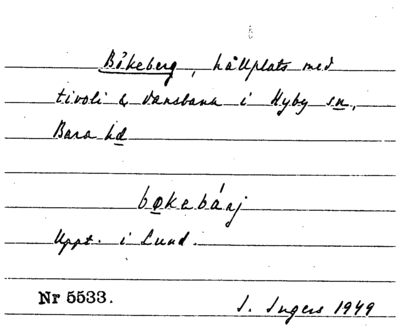 Bökeberg, hållplats med
tivoli & dansbana i Hyby sn,
Bara hd
bøkebárj
Uppt. i Lund.
Nr 5533.
I. Ingers 1949